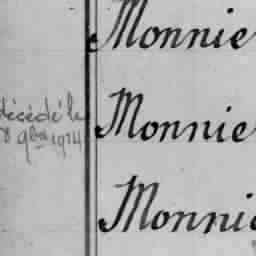 Monnie
décédé le
8 9bre 1914
Monnie
Monnie